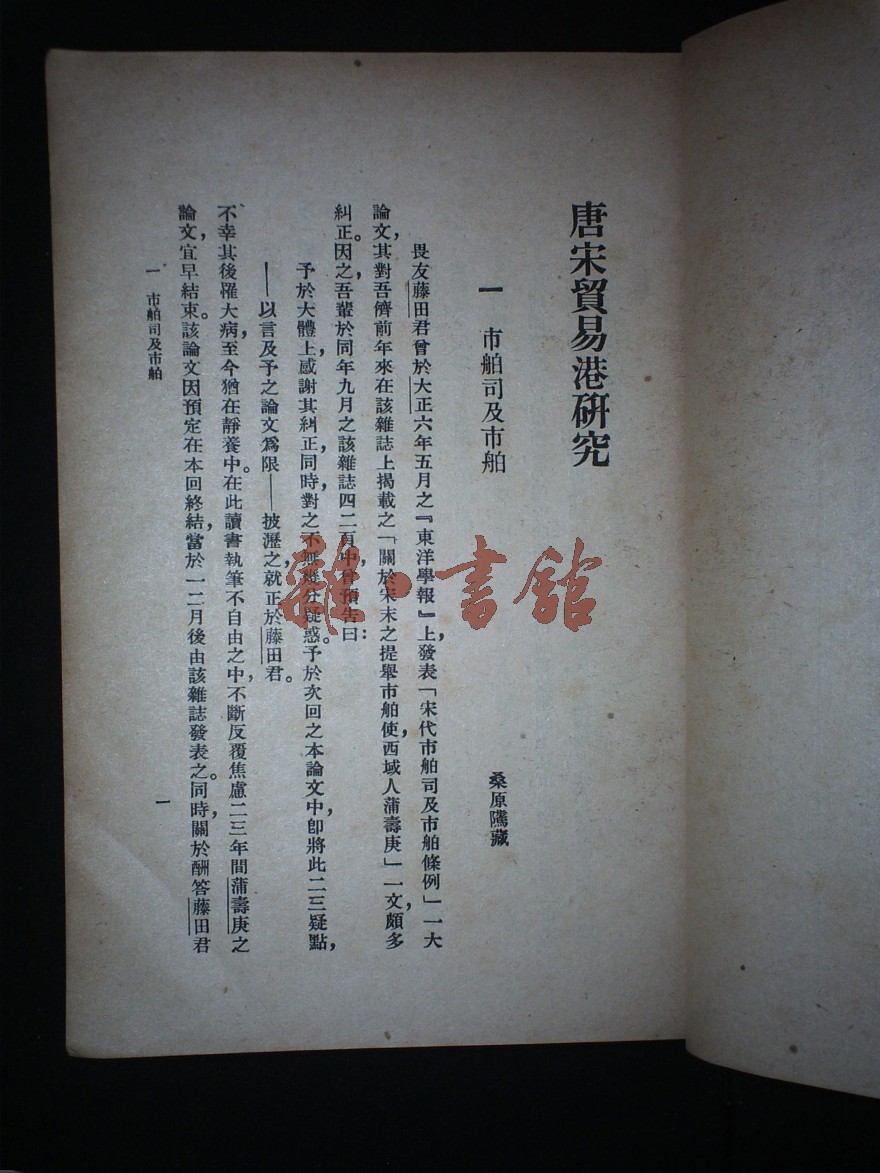 唐宋貿易港硏究
一 市舶司及市舶
桑原隲藏
畏友藤田君曾於大正六年五月之『東洋學報』上，發表「宋代市舶司及市舶條例」一大
論文，其對吾儕前年來在該雜誌上揭載之「關於宋末之提舉市舶使，西域人蒲壽庚」一文，頗多
糾正。因之，吾輩於同年九月之該雜誌四二頁中，曾預告曰：
予於大體上，感謝其糾正，同時對之不無幾分疑惑。予於次回之本論文中，卽將此二三疑點，
——以言及予之論文爲限——披瀝之，就正於藤田君。
不幸其後罹大病，至今猶在靜養中。在此讀書執筆不自由之中，不斷反覆焦慮二三年間蒲壽庚之
論文，宜早結束。該論文因預定在本回終結，當於一二月後由該雜誌發表之。同時，關於酬答藤田君
一 市舶司及市舶
一
雜·書館